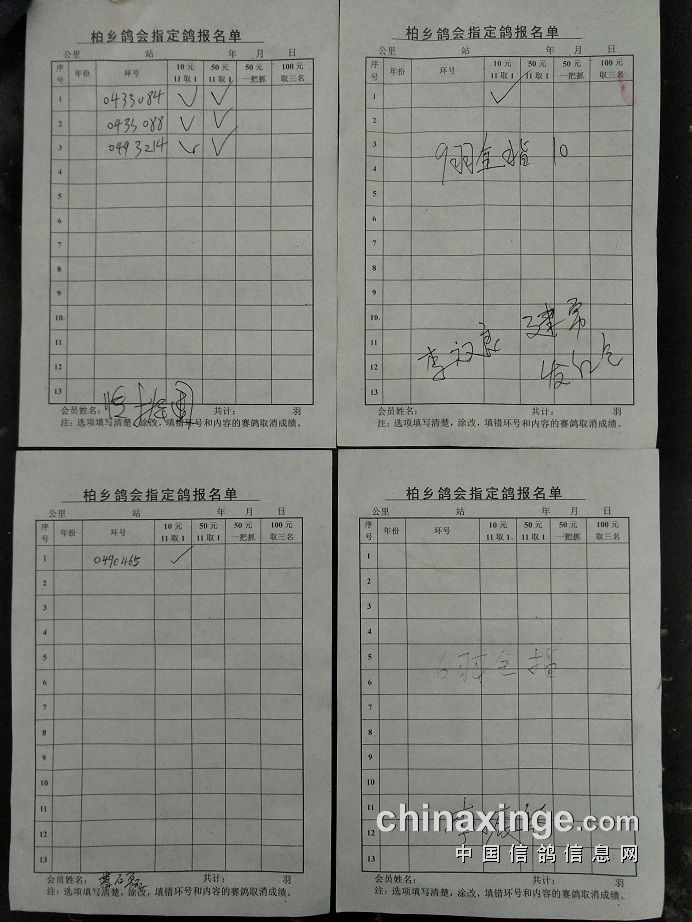 柏乡鸽会指定鸽报名单
公里 站 年 月 日
序号 年份 环号 10元 11取1 50元 11取1 50元 一把抓 100元 取三名
1 0433084 ✓ ✓
2 0433088 ✓ ✓
3 0493214 ✓ ✓
4
5
6
7
8
9
10
11
12
13
会员姓名: 共计: 羽
注:选项填写清楚,涂改,填错环号和内容的赛鸽取消成绩。
柏乡鸽会指定鸽报名单
公里 站 年 月 日
序号 年份 环号 10元 11取1 50元 11取1 50元 一把抓 100元 取三名
1 ✓
2
3
9羽全指 10
4
5
6
7
8
9
10
11
12
13
会员姓名: 共计: 羽
注:选项填写清楚,涂改,填错环号和内容的赛鸽取消成绩。
柏乡鸽会指定鸽报名单
公里 站 年 月 日
序号 年份 环号 10元 11取1 50元 11取1 50元 一把抓 100元 取三名
1 0490465 ✓
2
3
4
5
6
7
8
9
10
11
12
13
会员姓名: 共计: 羽
注:选项填写清楚,涂改,填错环号和内容的赛鸽取消成绩。
柏乡鸽会指定鸽报名单
公里 站 年 月 日
序号 年份 环号 10元 11取1 50元 11取1 50元 一把抓 100元 取三名
1
2
3
4
5
6羽全指
6
7
8
9
10
11
12
13
会员姓名: 共计: 羽
注:选项填写清楚,涂改,填错环号和内容的赛鸽取消成绩。
chinaxinge.com
中国信鸽信息网